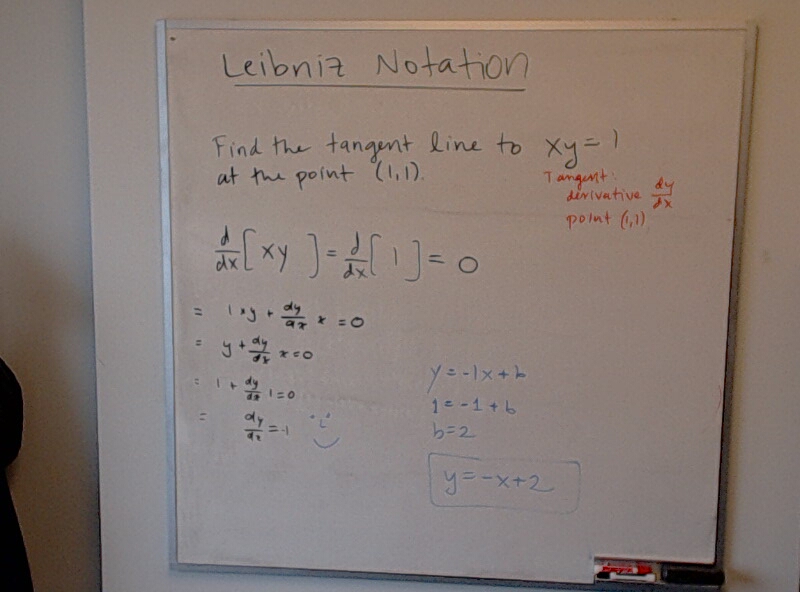 Leibniz Notation
Find the tangent line to xy = 1
at the point (1,1).
Tangent:
derivative dy/dx
point (1,1)
d/dx [xy] = d/dx [1] = 0
= 1 * y + dy/dx x = 0
= y + dy/dx x = 0
= 1 + dy/dx 1 = 0
= dy/dx = -1
y = -1x + b
1 = -1 + b
b = 2
y = -x + 2